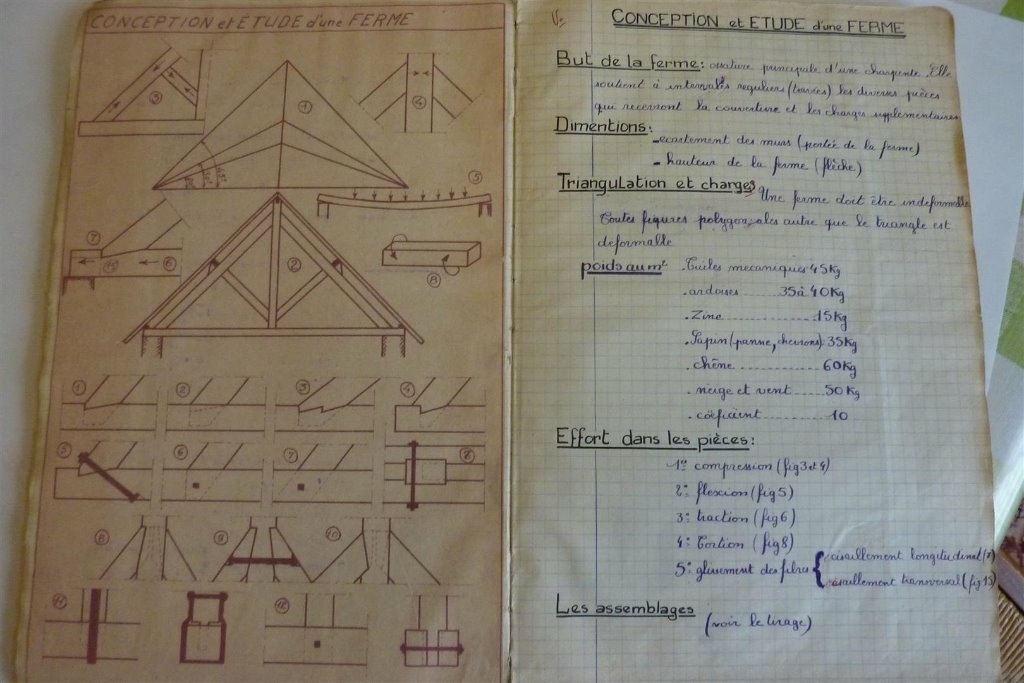 CONCEPTION et ÉTUDE d'une FERME
1
3
4
5
45°
7
6
2
8
1
2
3
4
5
6
7
8
8
9
10
11
12
V-
CONCEPTION et ETUDE d'une FERME
But de la ferme: ossature principale d'une charpente. Elle
soutient à intervalles reguliers (travées) les diverses pièces
qui recevront la couverture et les charges supplementaires
Dimentions:
- ecartement des murs (portée de la ferme)
- hauteur de la ferme (flèche)
Triangulation et charges Une ferme doit être indeformable
Toutes figures polygonales autre que le triangle est
deformable
poids au m² .Tuiles mecaniques 45Kg
.ardoises ........ 35 à 40Kg
.Zinc ................ 15Kg
.Sapin (panne, chevrons) 35Kg
.chêne ............... 60Kg
.neige et vent ...... 50Kg
.coëficient ......... 10
Effort dans les pièces:
1° compression (fig 3 et 4)
2° flexion (fig 5)
3° traction (fig 6)
4° Tortion (fig 8)
5° glissement des fibres { cisaillement longitudinal (7)
cisaillement transversal (fig 15)
Les assemblages
(voir le tirage)